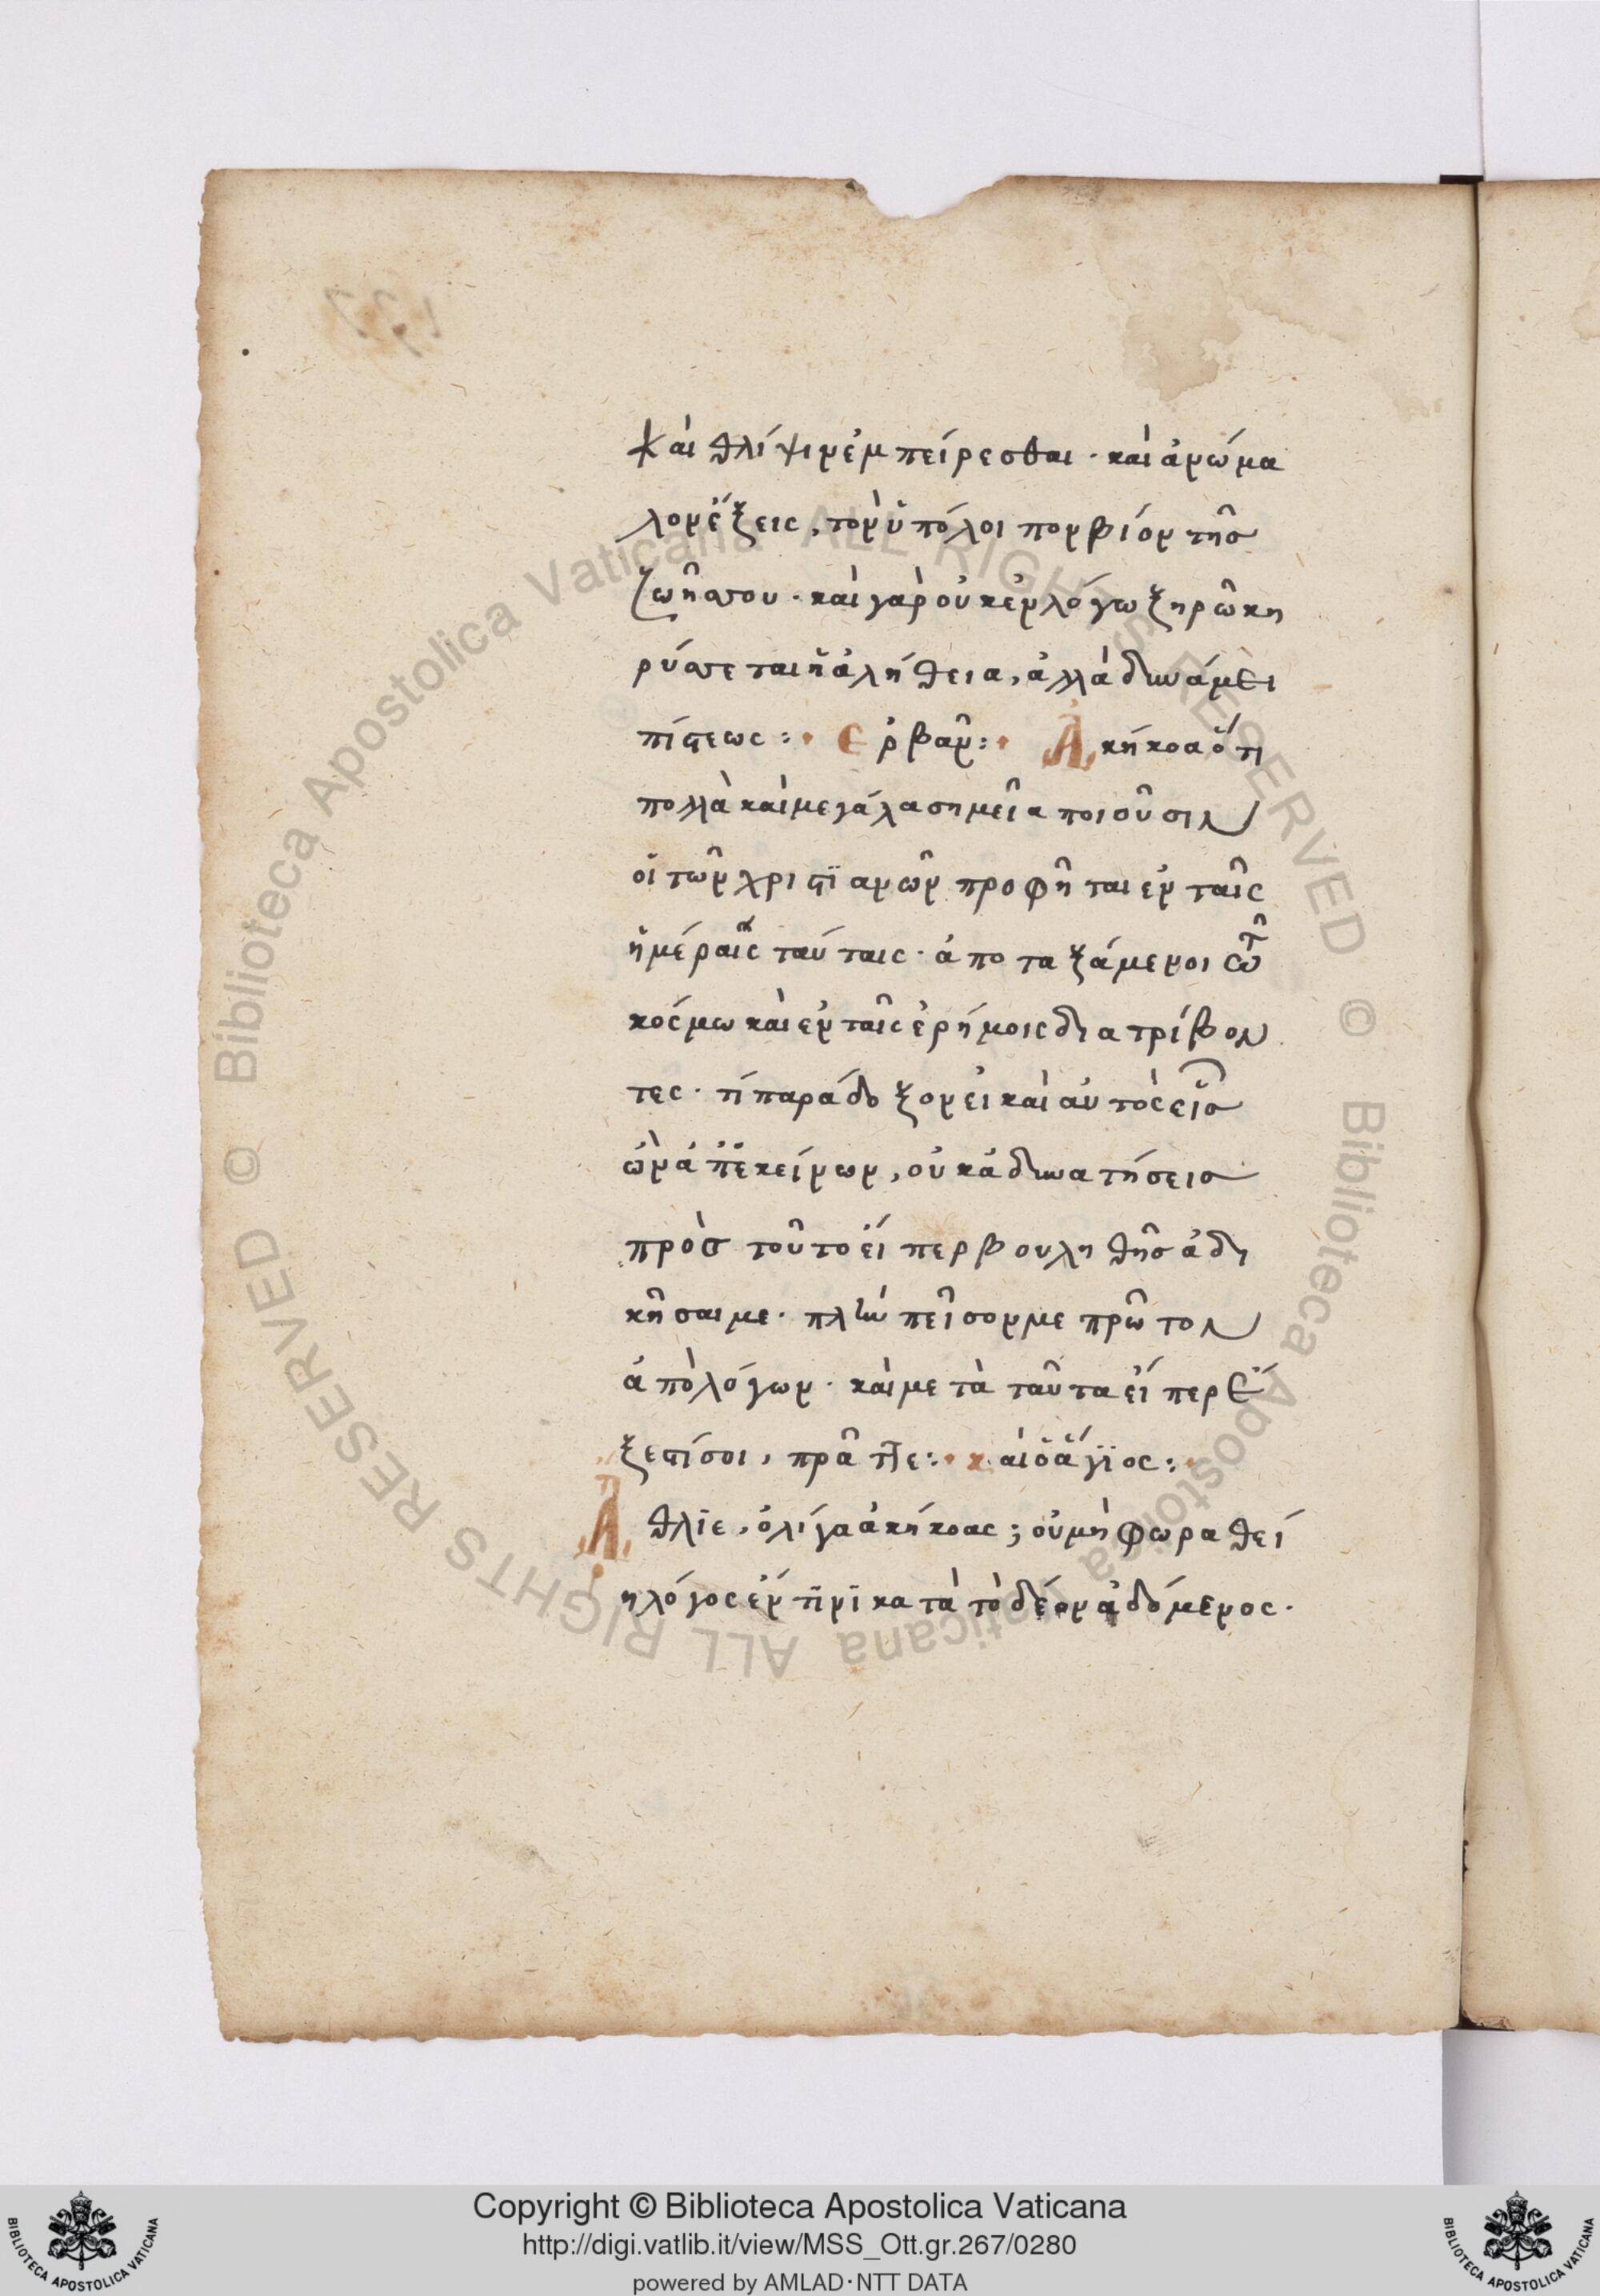 καὶ θλίψιν ἐμπείρεσθαι · καὶ ἀνώμα
λον ἕξεις, τὸν ὑπόλοιπον βίον τῆς
ζωῆς σου · καὶ γὰρ οὐκ ἐν λόγω ξηρῶ κη
ρύσσεται ἡ ἀλήθεια, ἀλλὰ δυνάμει
πίστεως :· Ερβᾶν :· Ἀκήκοα ὅτι
πολλὰ καὶ μεγάλα σημεῖα ποιοῦσιν
οἱ τῶν χριστϊανῶν προφῆται ἐν ταῖς
ἡμέραις ταύταις · ἀποταξάμενοι τῶ
κόσμω καὶ ἐν ταῖς ἐρήμοις διατρίβον
τες · τί παράδοξον εἰ καὶ αὐτὸς εἷς
ὢν ἀπ' ἐκείνων, οὐκ ἀδυνατήσεις
πρὸς τοῦτο εἴπερ βουληθῆς ἀδι
κῆσαι με · πλὴν πεῖσον με πρῶτον
ἀπὸ λόγων · καὶ μετὰ ταῦτα εἴπερ ἔ
ξεστί σοι, πρᾶττε :· καὶ ὁ ἅγϊος :·
Ἄθλϊε, ὀλίγα ἀκήκοας ; οὐ μὴ φωραθεί
η λόγος ἔν τϊνϊ κατὰ τὸ δέον ἀδόμενος ·
Copyright © Biblioteca Apostolica Vaticana
http://digi.vatlib.it/view/MSS_Ott.gr.267/0280
powered by AMLAD·NTT DATA
BIBLIOTECA APOSTOLICA VATICANA
BIBLIOTECA APOSTOLICA VATICANA
© Biblioteca Apostolica Vaticana ALL RIGHTS RESERVED © Biblioteca Apostolica Vaticana ALL RIGHTS RESERVED